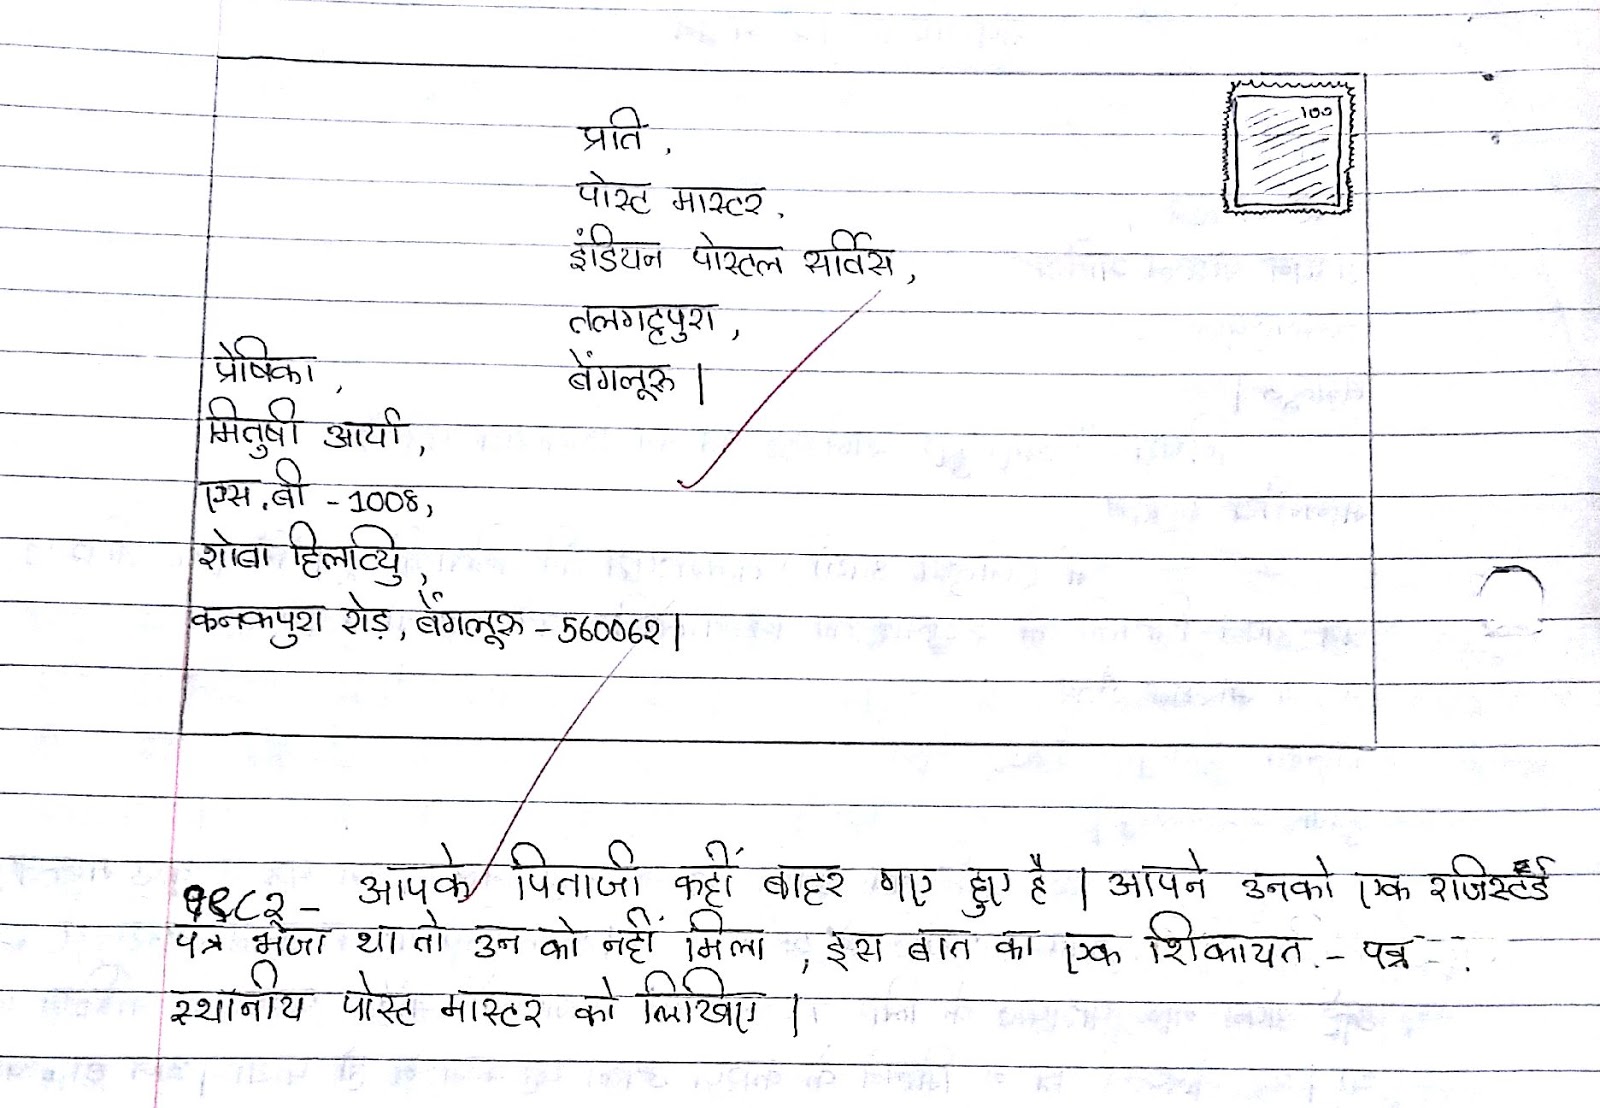 100
प्रति,
पोस्ट मास्टर,
इंडियन पोस्टल सर्विस,
तलगट्टपुरा,
बेंगलूरू।
प्रेषिका,
मितुषी आर्या,
एस.बी - 1008,
शोबा हिलव्यि,
कनकपुरा रोड़, बेंगलूरू - 560062।
आपके पिताजी कहीं बाहर गए हुए है। आपने उनको एक रजिस्टर्ड
पत्र भेजा था तो उन को नहीं मिला, इस बात का एक शिकायत - पत्र
स्थानीय पोस्ट मास्टर को लिखिए।